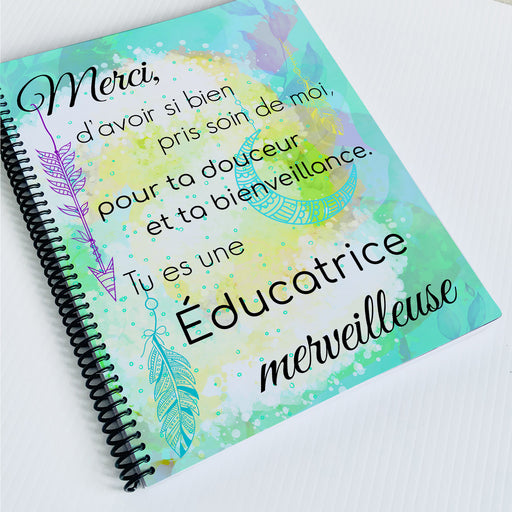 Merci,
d'avoir si bien
pris soin de moi,
pour ta douceur
et ta bienveillance.
Tu es une
Éducatrice
merveilleuse